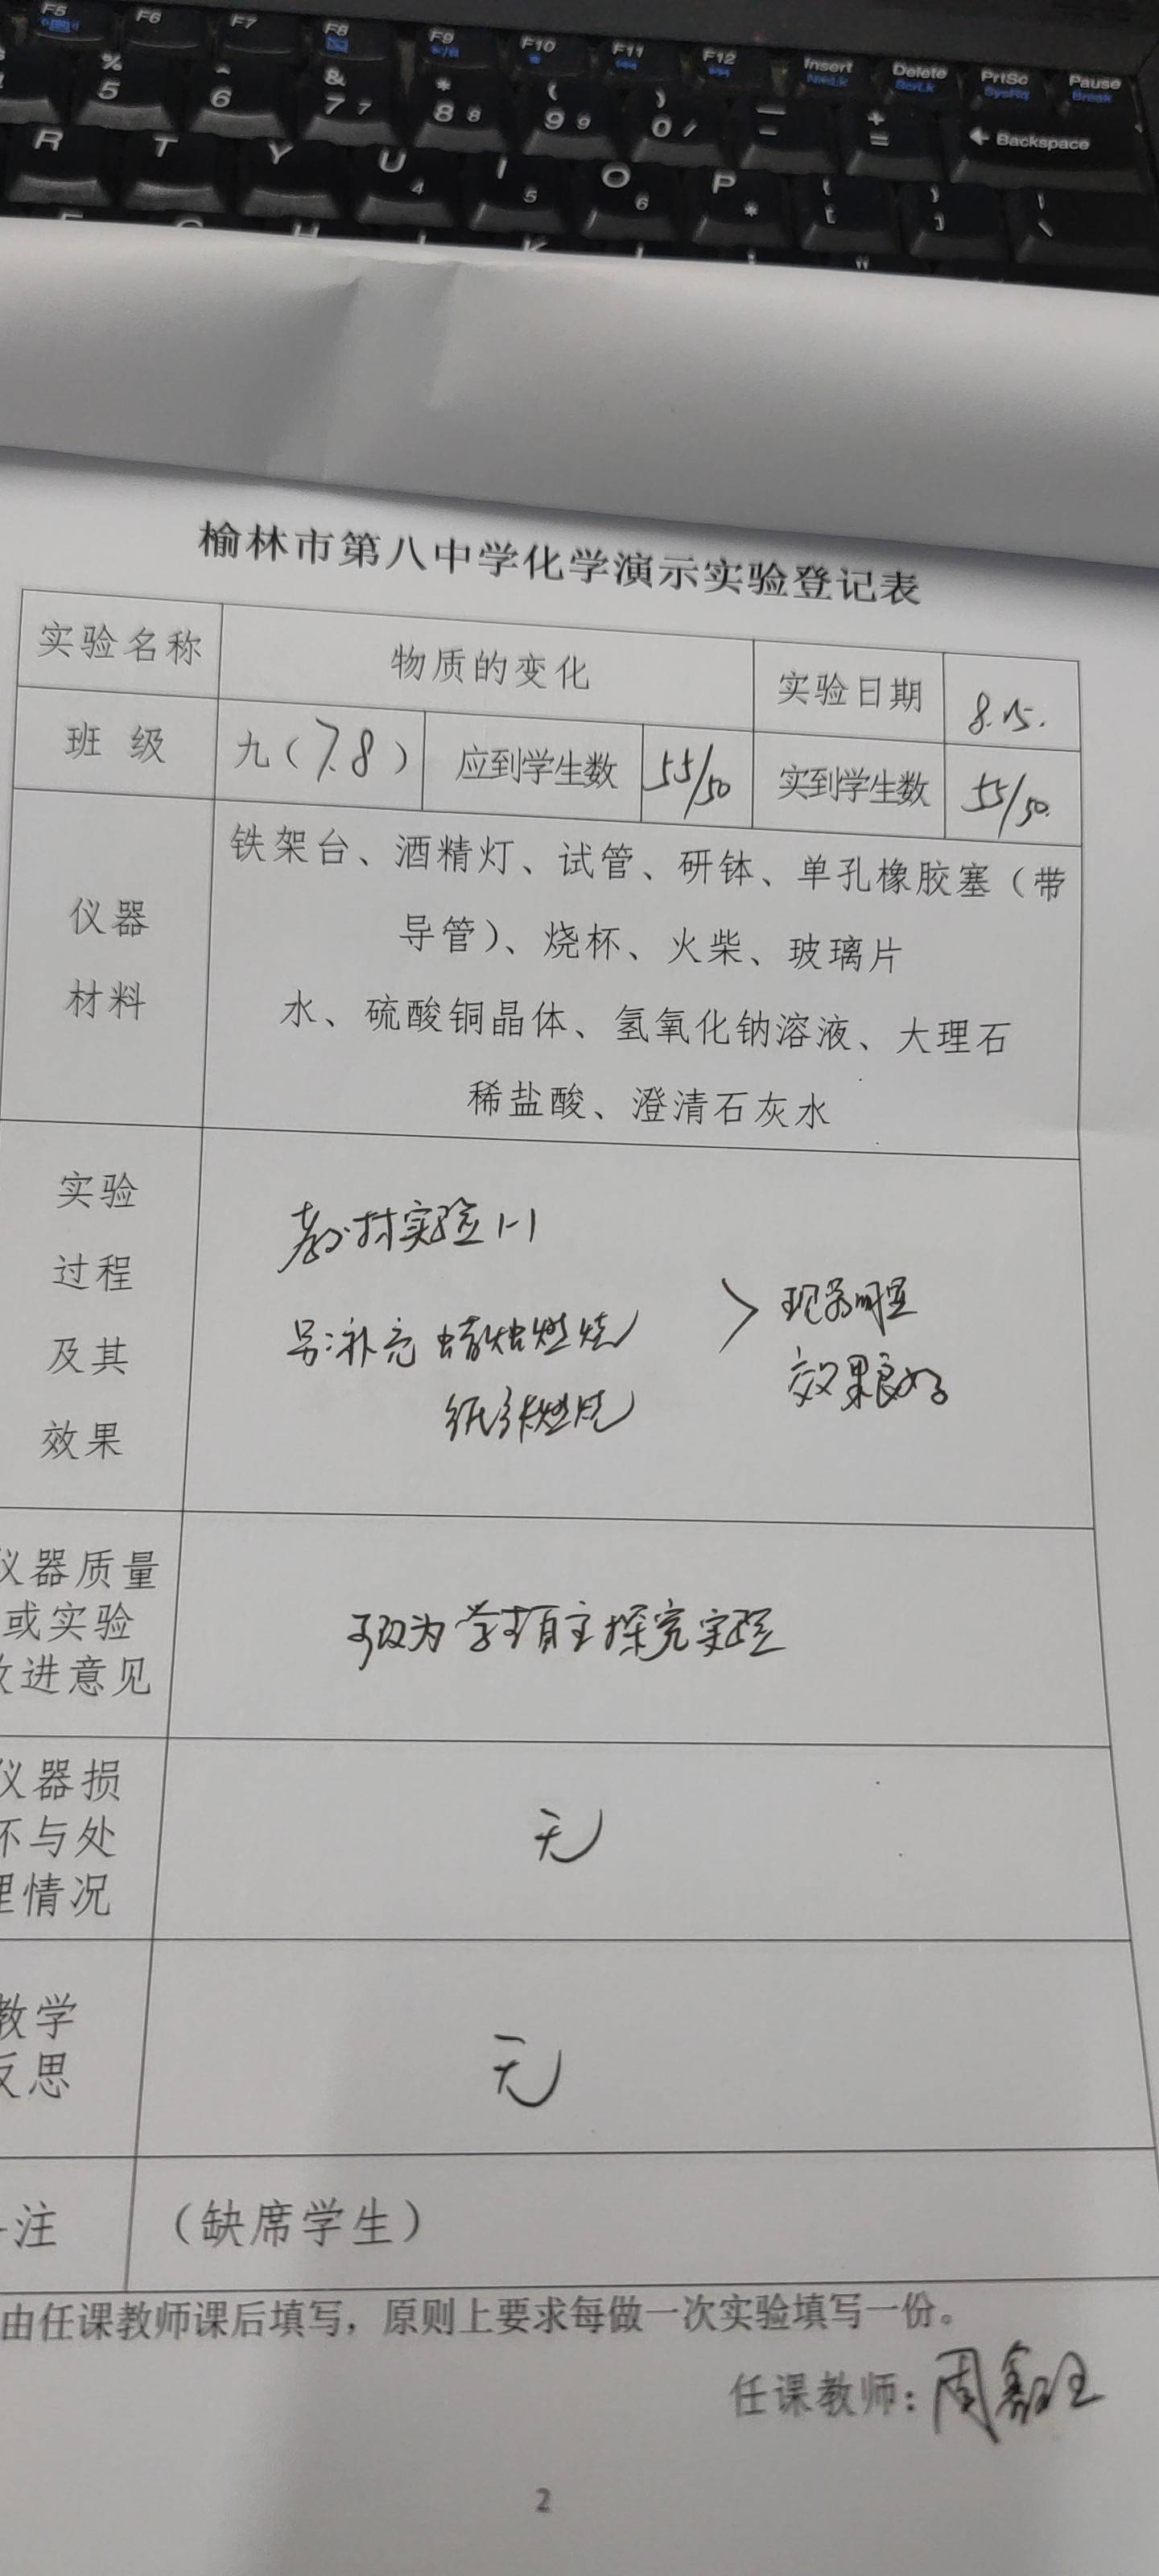 F5 F6 F7 F8 F9 F10 F11 F12 Insert Delete PrtSc Pause
NmLk ScrLk SysRq Break
% 5 ^ 6 & 7 7 * 8 8 ( 9 9 ) 0 / — - + = Backspace
R T Y U 4 I 5 O 6 P * { [ } ] | \
榆林市第八中学化学演示实验登记表
实验名称 物质的变化 实验日期 8.15.
班 级 九(7.8) 应到学生数 55/50 实到学生数 55/50.
仪器
材料
铁架台、酒精灯、试管、研钵、单孔橡胶塞（带
导管）、烧杯、火柴、玻璃片
水、硫酸铜晶体、氢氧化钠溶液、大理石
稀盐酸、澄清石灰水
实验
过程
及其
效果
教材实验1-1
另:补充 蜡烛燃烧 > 现象明显
纸张燃烧 效果良好
仪器质量
或实验
改进意见
可改为学生自主探究实验
仪器损
坏与处
理情况
无
教学
反思
无
注 （缺席学生）
由任课教师课后填写，原则上要求每做一次实验填写一份。
任课教师：周
2